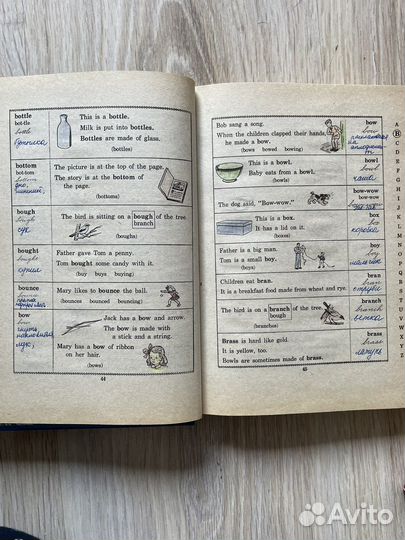 bottle
bot-tle
bottle
бутылка
This is a bottle.
Milk is put into bottles.
Bottles are made of glass.
(bottles)
bottom
bot-tom
bottom
дно,
The picture is at the top of the page.
The story is at the bottom of
the page.
(bottoms)
bough
bough
сук
The bird is sitting on a bough of the tree.
branch
(boughs)
bought
bought
купил
Father gave Tom a penny.
Tom bought some candy with it.
(buy buys buying)
bounce
bounce
Mary likes to bounce the ball.
(bounces bounced bouncing)
bow
bow
гнуть
лук,
Jack has a bow and arrow.
The bow is made with
a stick and a string.
Mary has a bow of ribbon
on her hair.
(bows)
44
Bob sang a song.
When the children clapped their hands,
he made a bow.
(bows bowed bowing)
bow
bow
This is a bowl.
Baby eats from a bowl.
(bowls)
bowl
bowl
чаша
The dog said, "Bow-wow."
bow-wow
bow-wow
"гав-гав"
This is a box.
It has a lid on it.
(boxes)
box
box
коробка
Father is a big man.
Tom is a small boy.
(boys)
boy
boy
мальчик
Children eat bran.
It is a breakfast food made from wheat and rye.
bran
bran
отруби
The bird is on a branch of the tree.
bough
(branches)
branch
branch
ветка
Brass is hard like gold.
It is yellow, too.
Bowls are sometimes made of brass.
brass
brass
латунь
45
A
B
C
D
E
F
G
H
I
J
K
L
M
N
O
P
Q
R
S
T
U
V
W
X
Y
Z
Avito